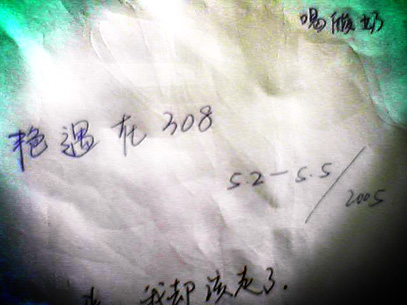 喝酸奶
艳遇在 308
5.2-5.5/2005
我却该走了.